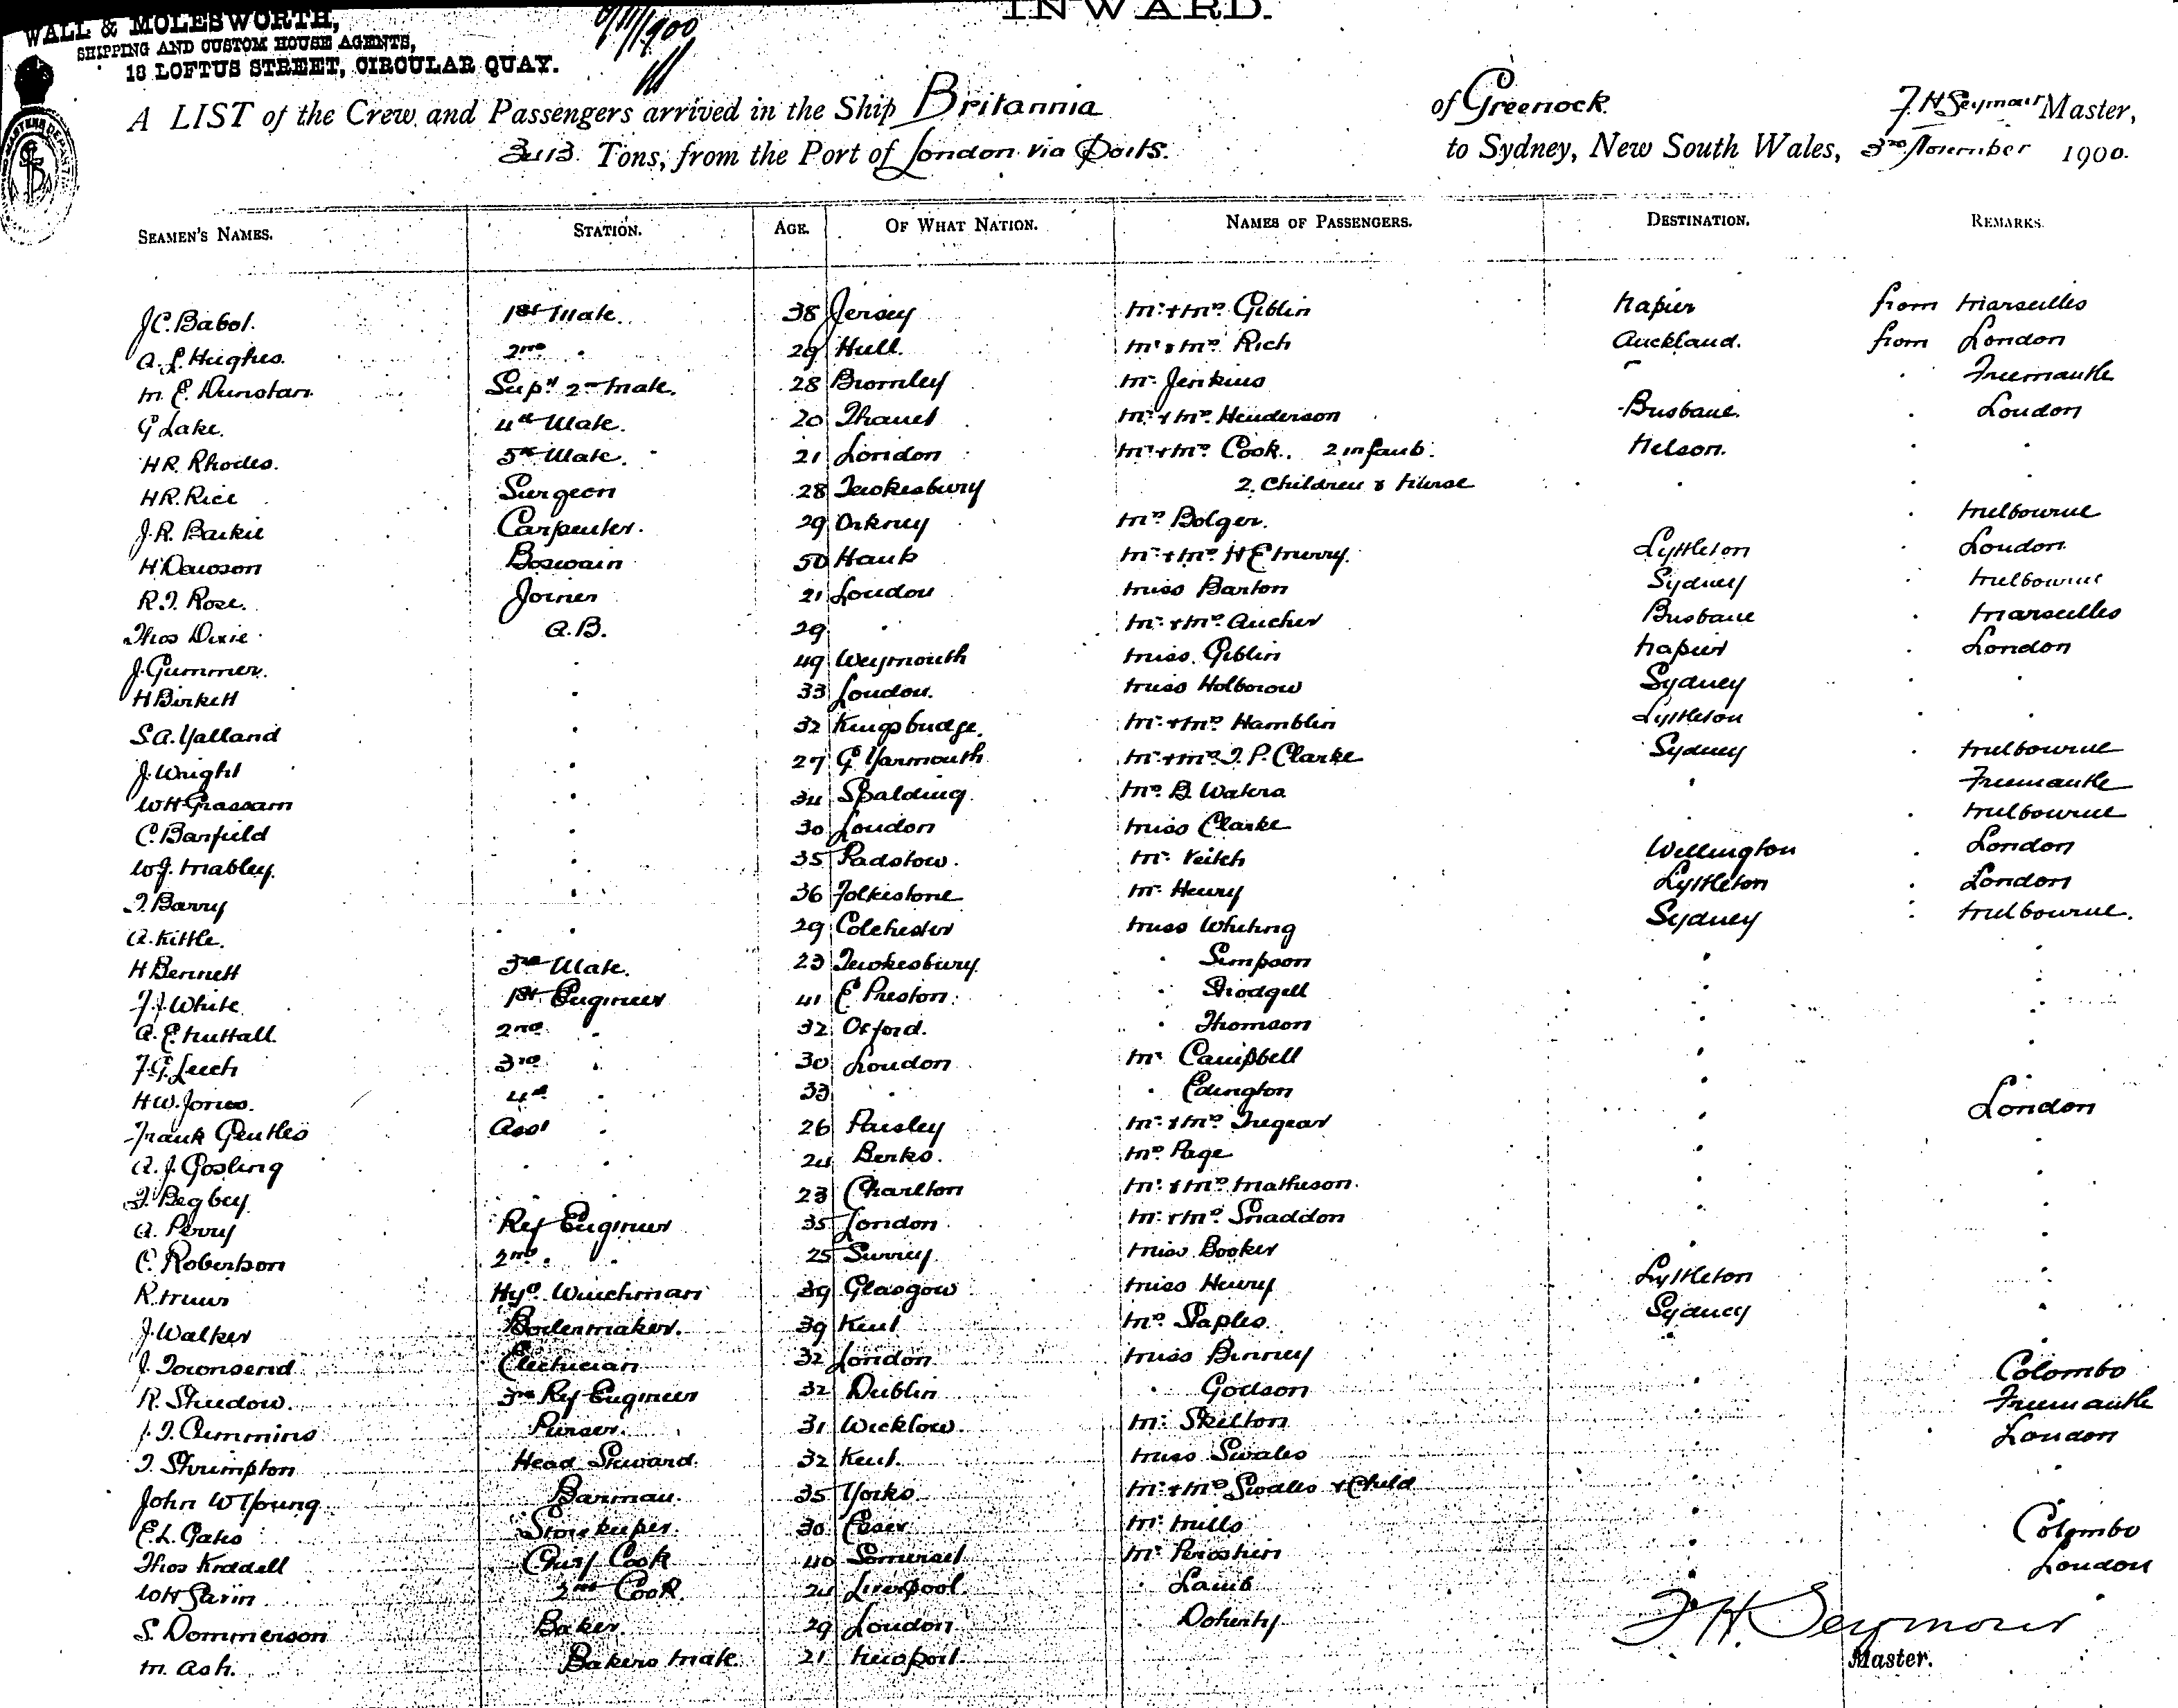 INWARD.
WALL & MOLESWORTH,
SHIPPING AND CUSTOM HOUSE AGENTS,
18 LOFTUS STREET, CIRCULAR QUAY.
A LIST of the Crew and Passengers arrived in the Ship Britannia of Greenock F. H Seymour Master,
3413 Tons, from the Port of London via Ports. to Sydney, New South Wales, 3rd November 1900.
SEAMEN'S NAMES. STATION. AGE. OF WHAT NATION. NAMES OF PASSENGERS. DESTINATION. REMARKS.
J C. Babot. 1st Mate. 38 Jersey Mr & Mrs Giblin Napier from Marseilles
A. L. Hughes. 2nd " 29 Hull. Mr & Mrs Rich Auckland. from London
M. E. Dunstan Supy 2nd Mate. 28 Bromley Mr Jenkins " " Freemantle
G Lake. 4th Mate. 20 Thanet Mr & Mrs Henderson Brisbane. " London
H R. Rhodes. 5th Mate. 21 London Mr & Mrs Cook. 2 infants. Nelson. " "
H R. Rice Surgeon 28 Tewkesbury 2 Children & Nurse " " "
J. R. Baikie Carpenter. 29 Orkney Mrs Bolger. " Melbourne
H Dawson Boswain 50 Hants Mr & Mrs H E Murry. Lyttleton " London
R. T. Rose. Joiner 21 London Miss Barton Sydney " Melbourne
Thos Dixie A. B. 29 " Mr & Mrs Aucher Brisbane " Marseilles
J. Gummer. " 49 Weymouth Miss Giblin Napier " London
H Birkett " 33 London. Miss Holborow Sydney " "
S. A. Yalland " 32 Kingsbridge. Mr & Mrs Hamblin Lyttleton " "
J. Wright " 27 G. Yarmouth Mr & Mrs T. P. Clarke Sydney " Melbourne
W H Grassam " 34 Spalding. Mrs B. Waters " Freemantle
C. Barfield " 30 London Miss Clarke " " Melbourne
W. J. Mabley. " 35 Padstow. Mr Veitch Wellington " London
T. Barry " 36 Folkestone Mr Henry Lyttleton " London
A. Kittle. " 29 Colchester Miss Whiting Sydney " Melbourne.
H Bennett 3rd Mate. 23 Tewkesbury " Simpson " "
F. J. White 1st Engineer 41 E Preston. " Strodgell " "
A. E. Nuttall. 2nd " 32 Oxford. " Thomson " "
F. G. Leech 3rd " 30 London Mr Campbell " "
H W. Jones. 4th " 33 " " Edington " "
Frank Gentles Asst " 26 Paisley Mr & Mrs Tregear " London
A. J. Gosling " " 24 Berks. Mrs Page " "
T. Begbey " " 23 Charlton Mr & Mrs Matheson. " "
A. Perry Ref Engineer 35 London Mr & Mrs Snaddon " "
C. Robertson 2nd " " 25 Surrey. Miss Booker " "
R. Muir Hyd. Winchman 39 Glasgow Miss Henry Lyttleton "
J. Walker Boilermaker. 39 Kent Mrs Staples Sydney "
J. Townsend Electrician 32 London Miss Binney " "
R. Shudow. 3rd Ref Engineer 32 Dublin " Godson " Colombo
J. T. Cummins Purser. 31 Wicklow. Mr Skelton " Freemantle
T. Shrimpton Head Steward. 32 Kent. Miss Swales " London
John W Young Barman. 35 Yorks Mr & Mrs Swales & Child " "
E. L. Gates Storekeeper. 30 Essex Mr Mills "
Thos Kiddell Chief Cook 40 Somerset Mr " Colombo
W H 2nd Cook. 24 Liverpool " Lamb London
S. Dommerson Baker 29 London " Doherty F. H. Seymour
M. Ash. Bakers Mate 21 Newport Master.